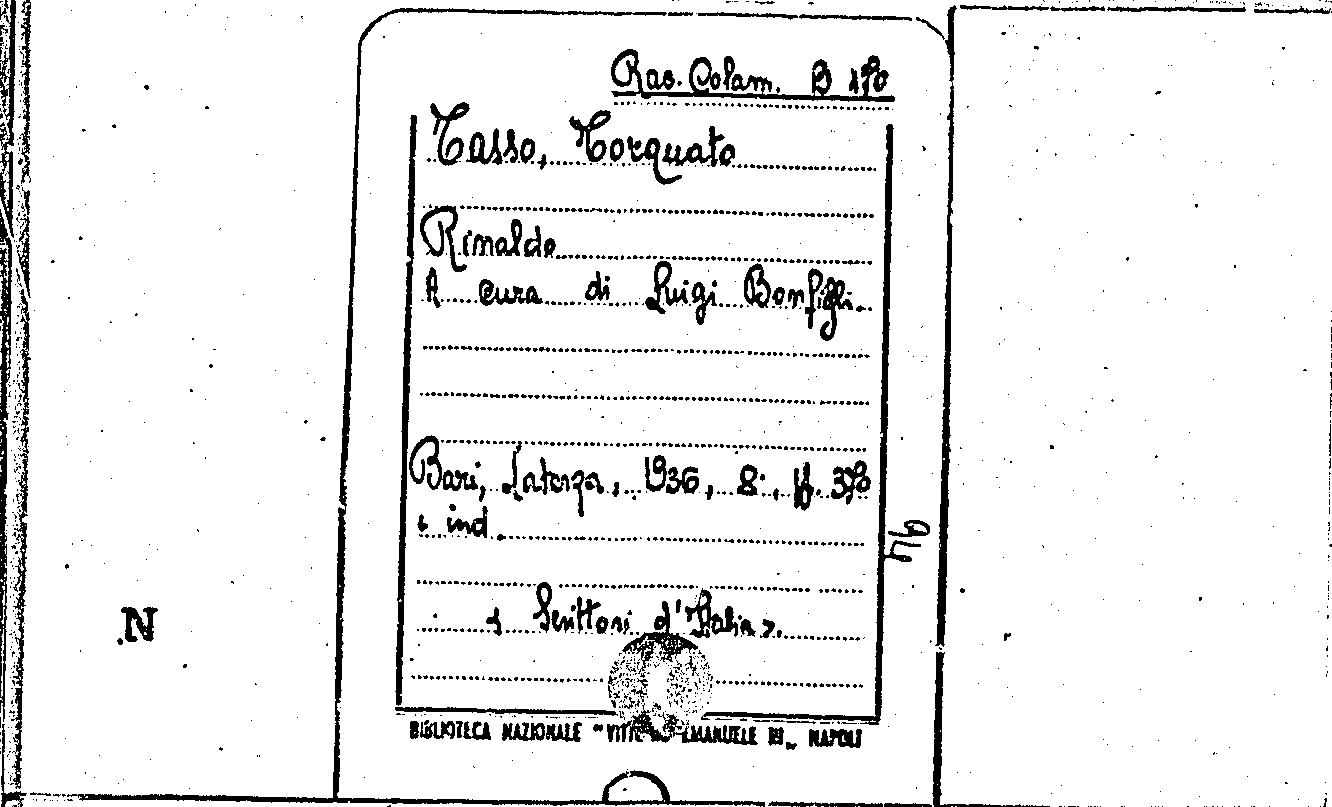 Rac. Colam. B 170
Tasso, Torquato
Rinaldo
A cura di Luigi Bonfigli.
Bari, Laterza, 1936, 8°, pp. 370
e ind.
< Scrittori d'Italia >.
94
N
BIBLIOTECA NAZIONALE "VITT. EMANUELE III" NAPOLI